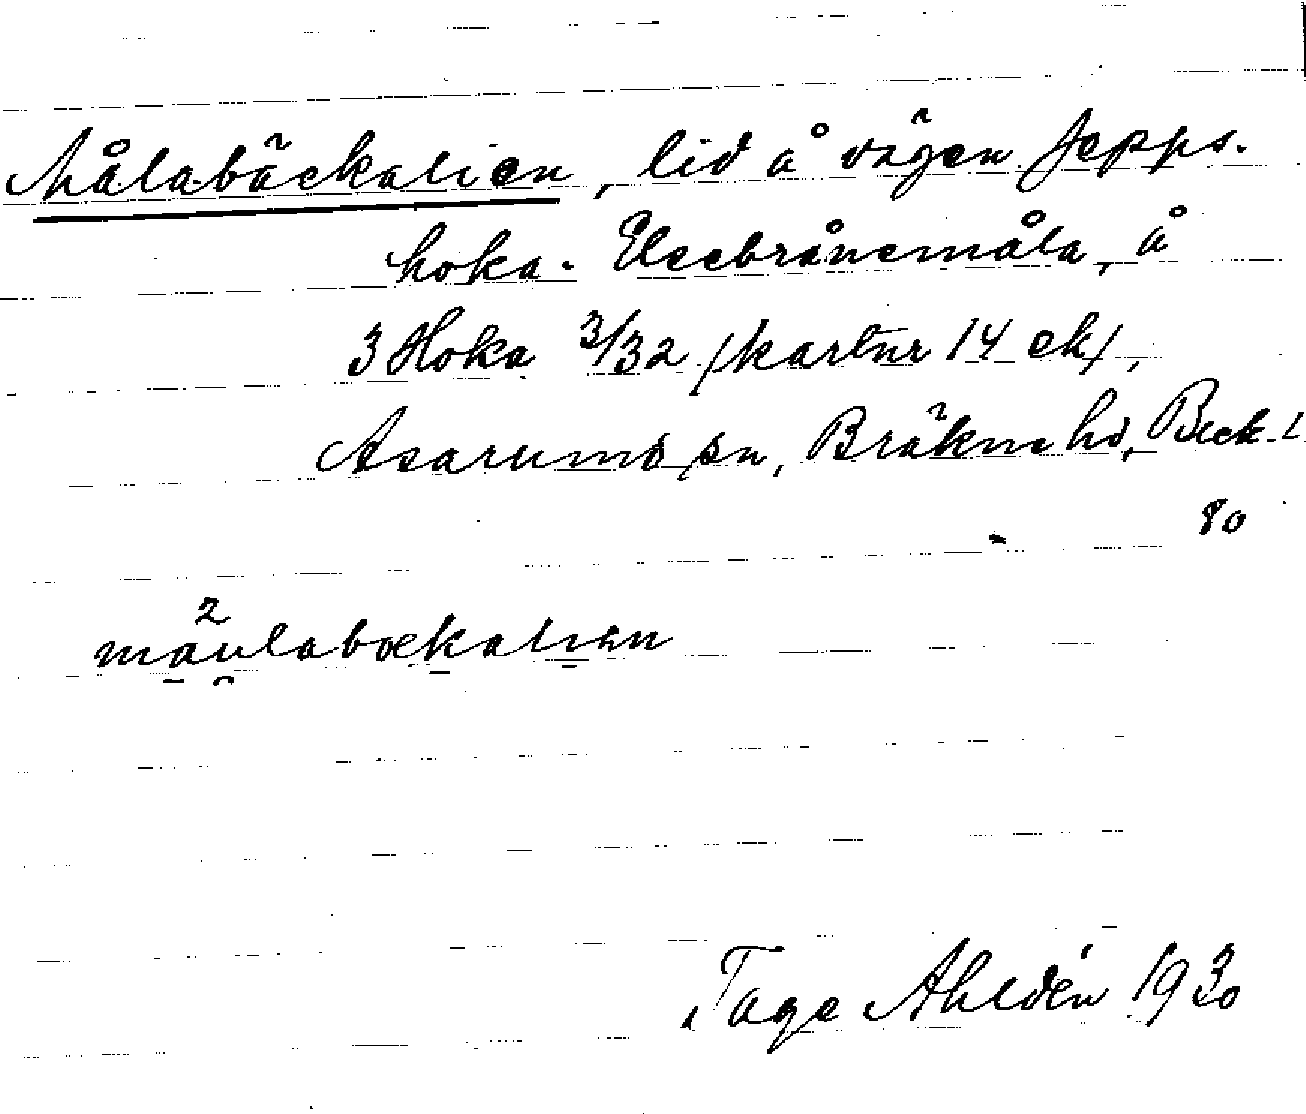 Målabäckalien, lid å vägen Jepps-
hoka - Elsebrånemåla, å
3 Hoka 3/32 (kartnr 14 ek),
Asarums sn, Bräkne hd, Blek. l.
80
2
maulabækalien
Tage Ahldén 1930